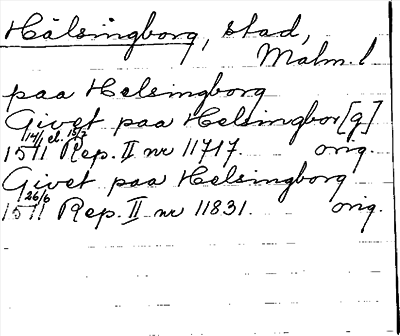 Hälsingborg, stad,
Malm. l
paa Helsingborg
Givet paa Helsingbor[g]
1511 14/1 el. 15/2 Rep. II nr 11717. orig.
Givet paa Helsingborg
1511 26/6 Rep. II nr 11831. orig.